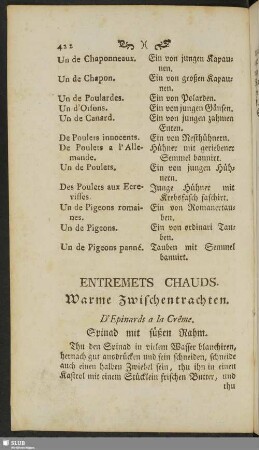 422
Un de Chaponneaux. Ein von jungen Kapau-
nen.
Un de Chapon. Ein von großen Kapau-
nen.
Un de Poulardes. Ein von Polarden.
Un d'Oisons. Ein von jungen Gänsen.
Un de Canard. Ein von jungen zahmen
Enten.
De Poulets inocents. Ein von Nesthühnern.
De Poulets a l'Alle- Hühner mit geriebener
mande. Semmel bannirt.
Un de Poulets. Ein von jungen Hüh-
nern.
Des Poulets aux Ecre- Junge Hühner mit
visses. Krebsfasch faschirt.
Un de Pigeons romai- Ein von Romanertau-
nes. ben.
Un de Pigeons. Ein von ordinari Tau-
ben.
Un de Pigeons panné. Tauben mit Semmel
bannirt.
ENTREMETS CHAUDS.
Warme Zwischentrachten.
D'Epinards a la Crême.
Spinad mit süßen Rahm.
Thu den Spinad in vielem Wasser blanchiren,
hernach gut ausdrücken und fein schneiden, schneide
auch einen halben Zwiebel fein, thu ihn in einen
Kastrol mit einem Stücklein frischen Butter, und
thu
SLUB